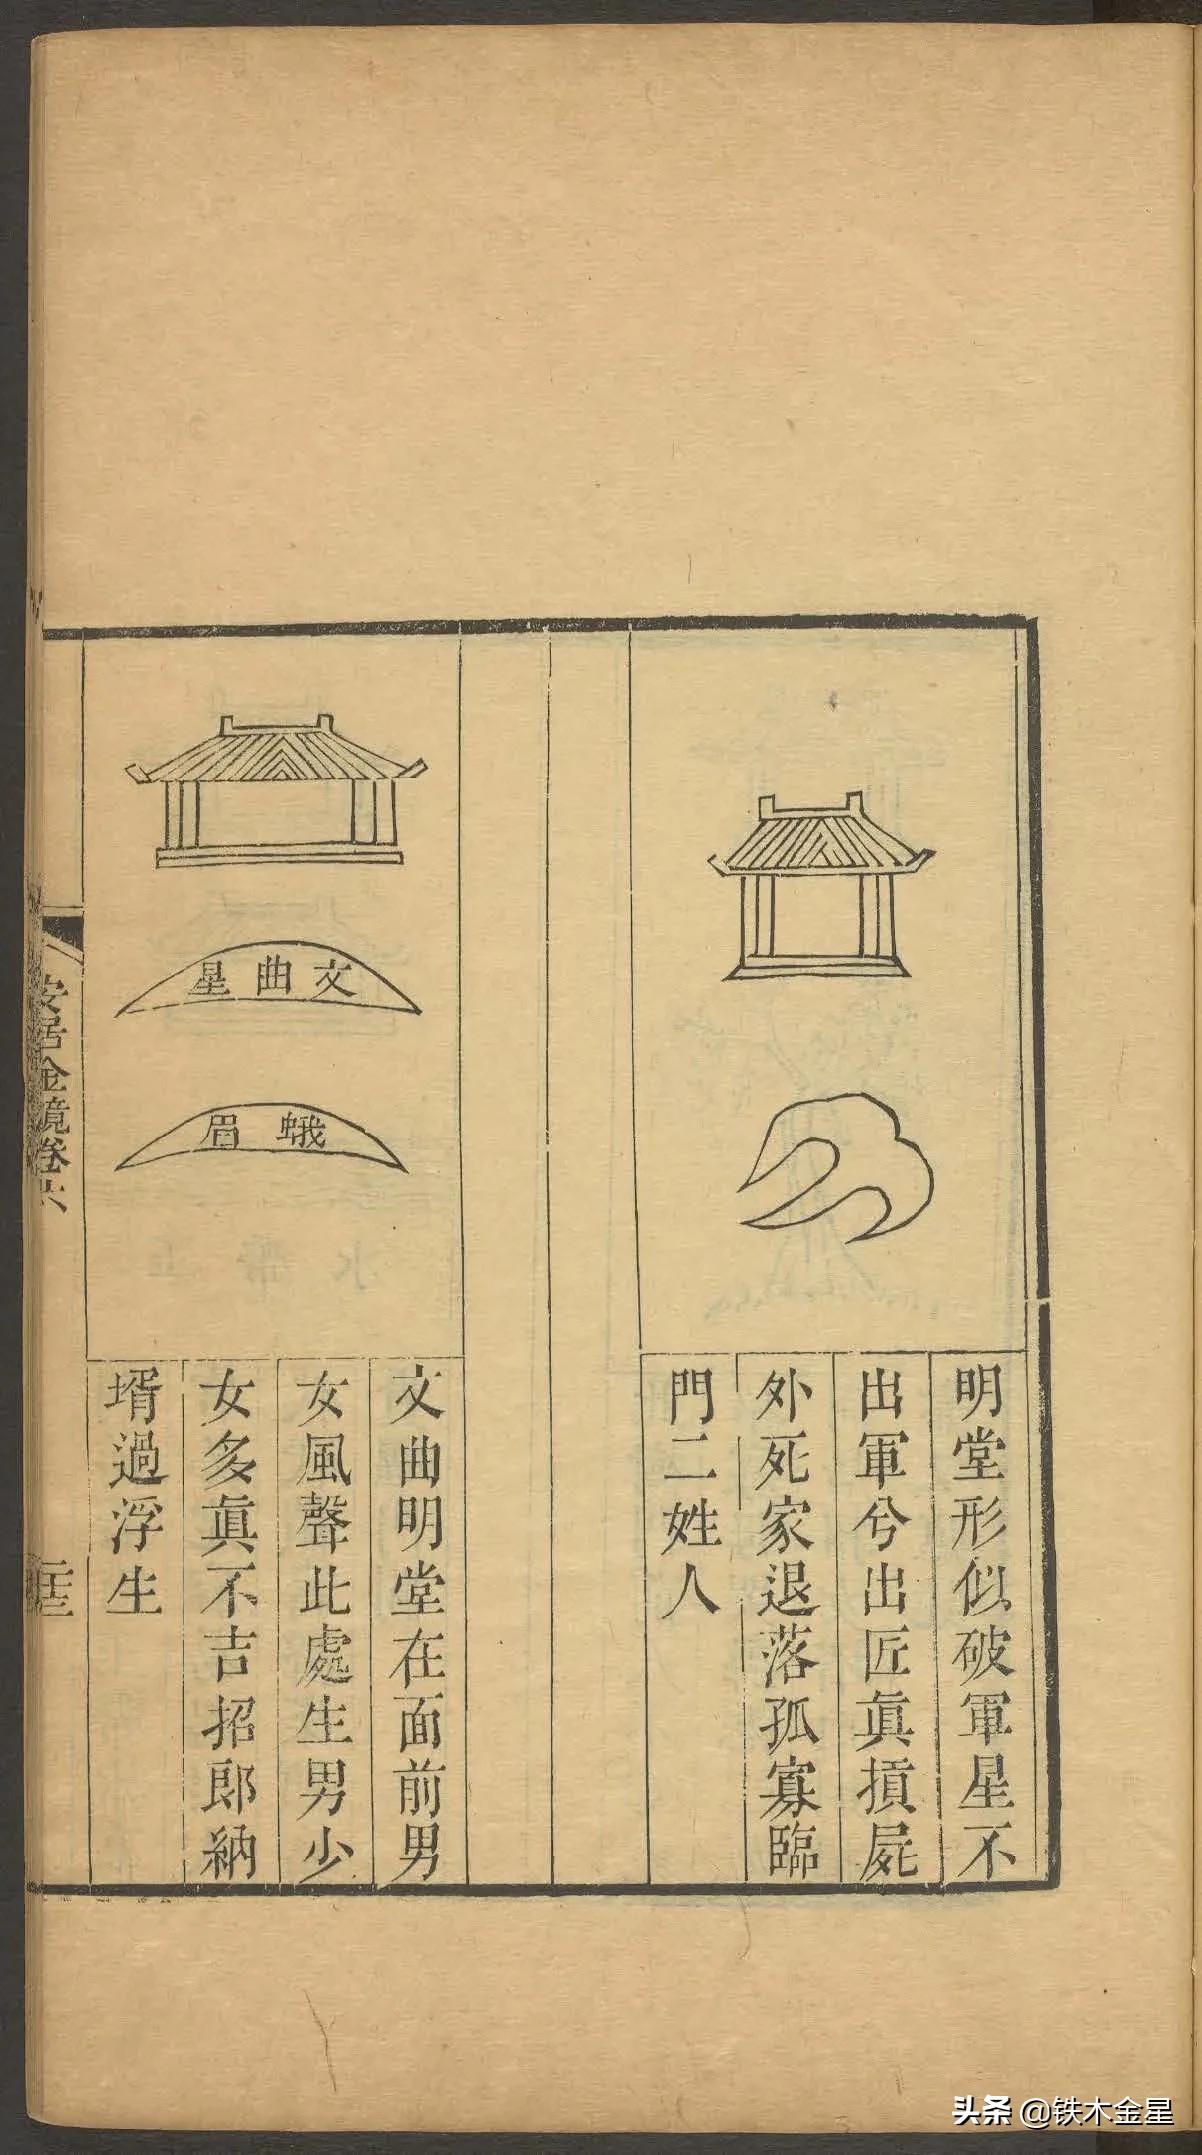 明堂形似破軍星不
出軍兮出匠眞摃屍
外死家退落孤寡臨
門二姓人
文曲星
蛾眉
文曲明堂在面前男
女風聲此處生男少
女多眞不吉招郎納
壻過浮生
安居金鏡卷六
头条 @铁木金星